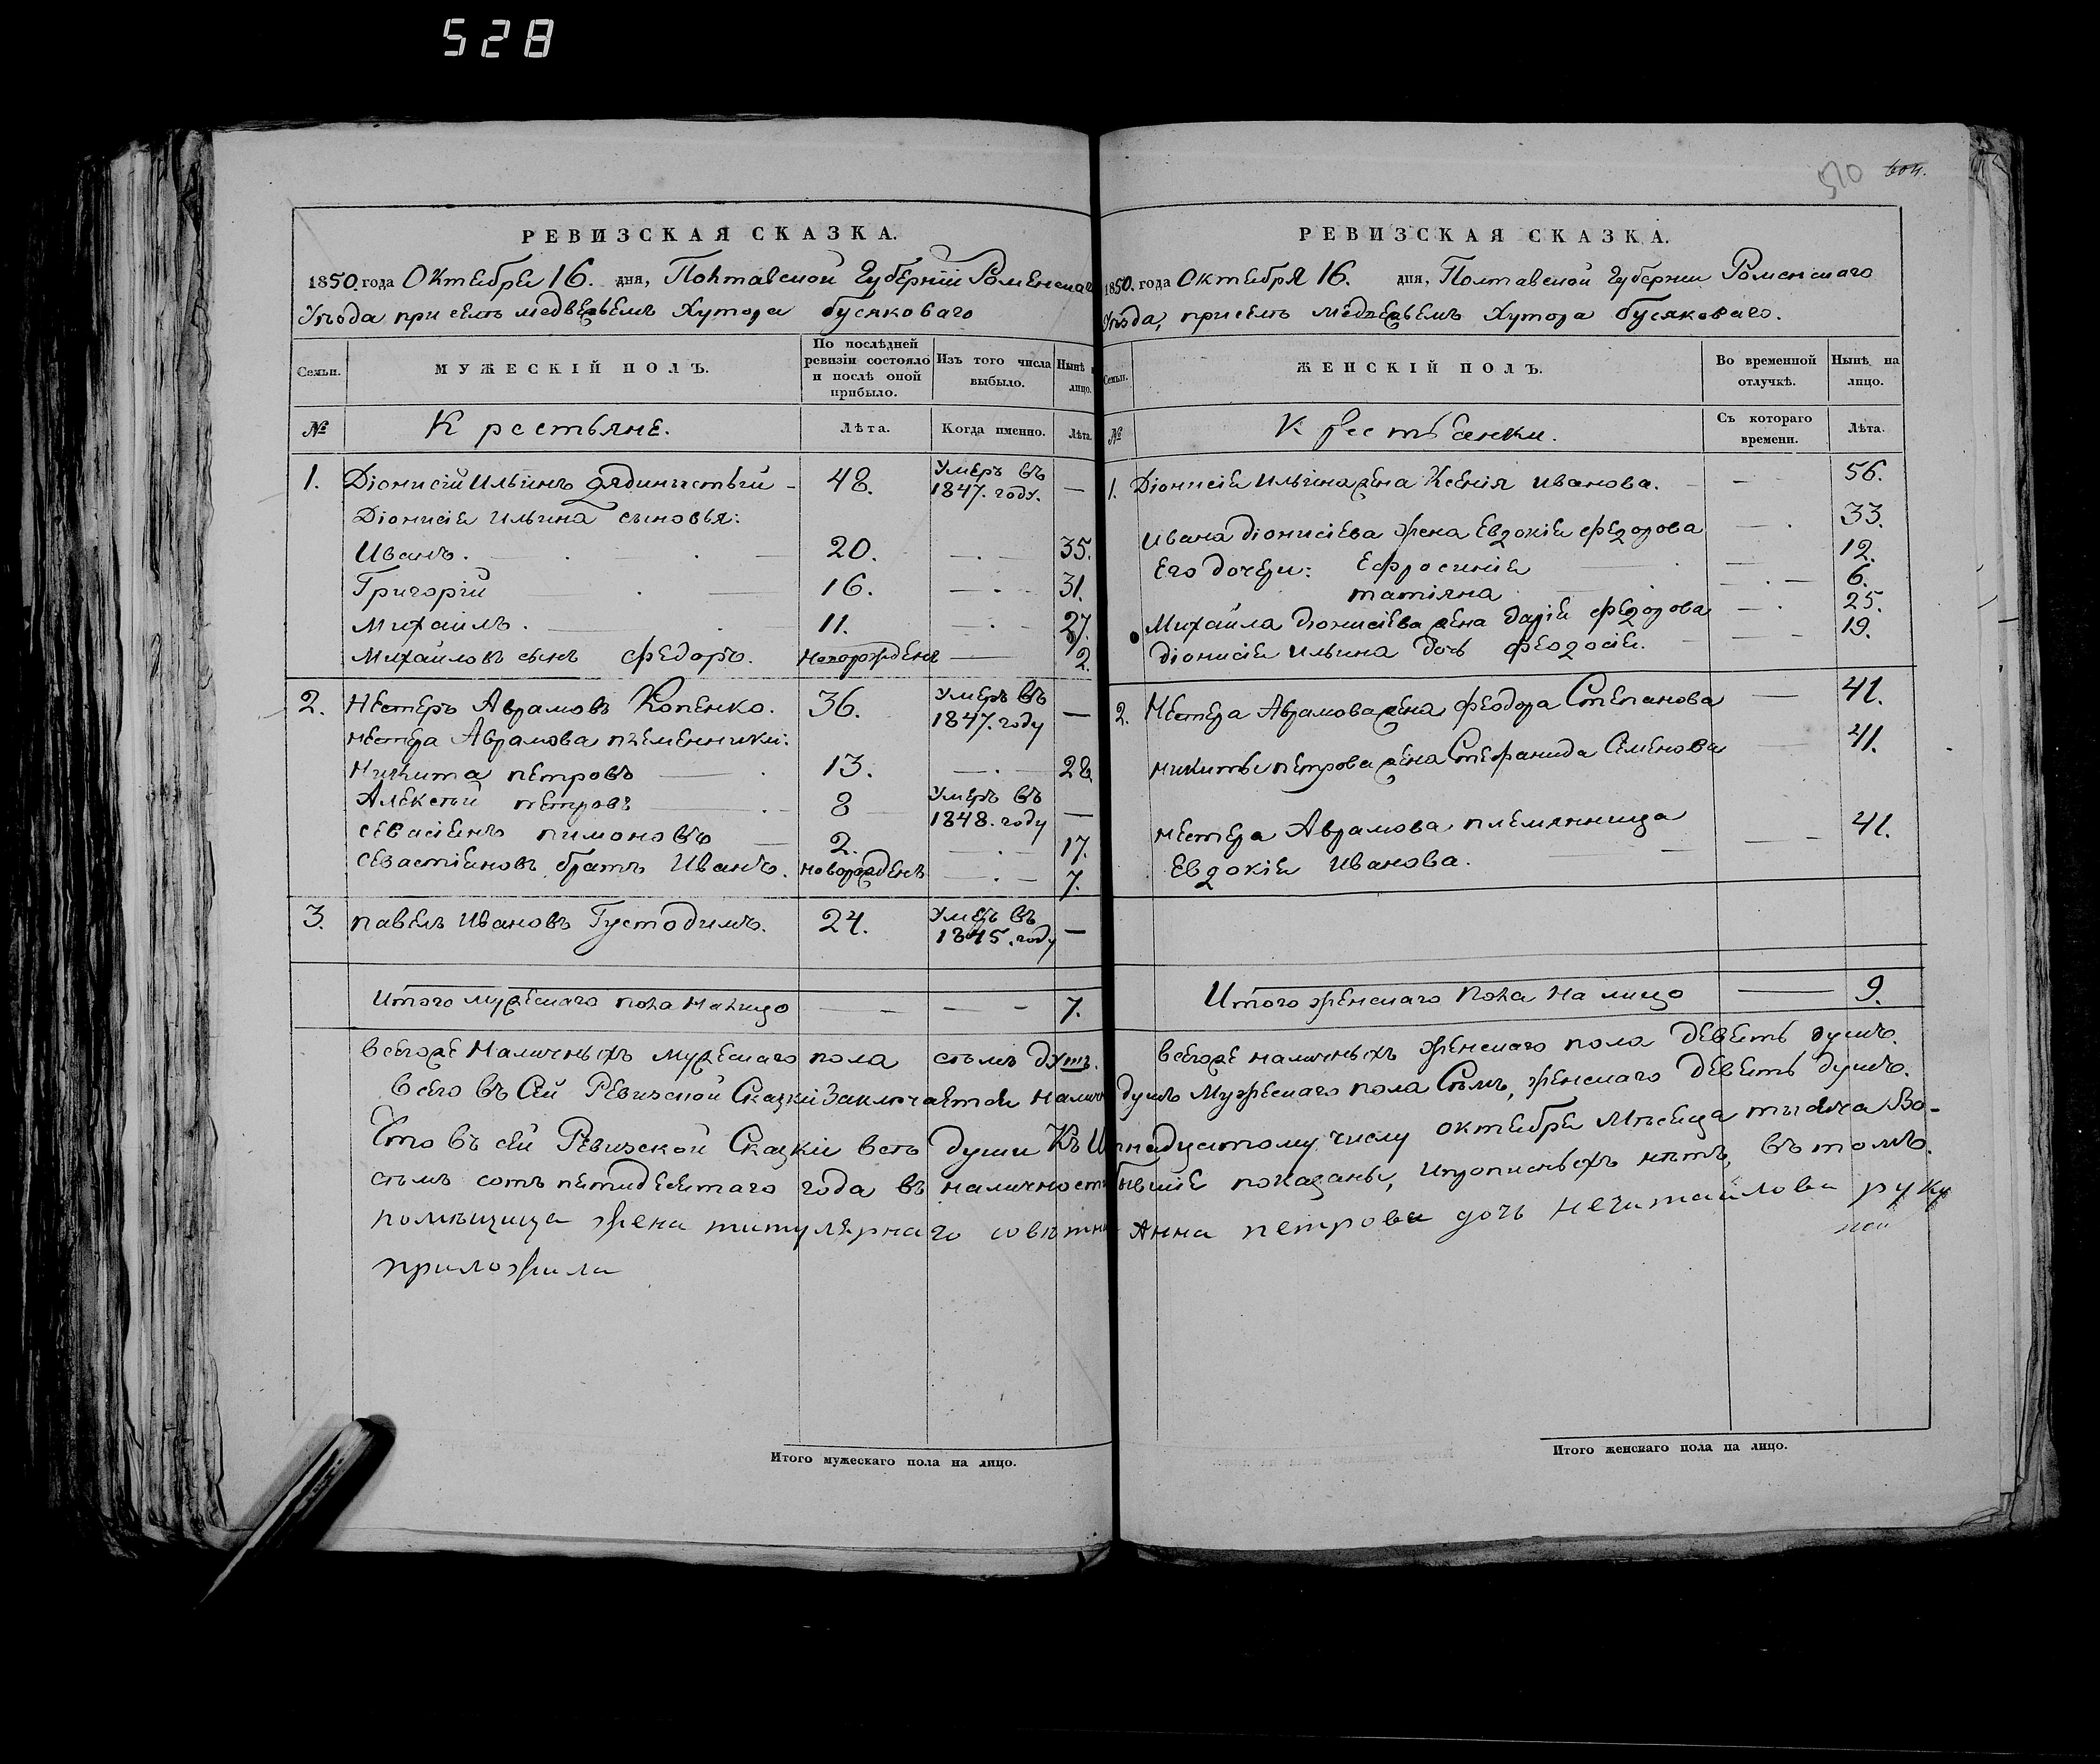 528
510 604.
РЕВИЗСКАЯ СКАЗКА.
1850. года Октебре 16. дня, Полтавской Губерніи Роменскаг
Уѣзда при селѣ медвежьемъ Хутора бусяковаго
Семьи. МУЖЕСКІЙ ПОЛЪ. По послѣдней ревизіи состояло и послѣ оной прибыло. Изъ того числа выбыло. Нынѣ н лицо.
№ Крестьяне. Лѣта. Когда именно. Лѣта.
1. Діонисій Ильинъ - 48. Умеръ въ 1847. году. —
Діонисіе Ильина сыновья:
Иванъ. 20. 35.
Григорій 16. 31.
Михаилъ. 11. 27.
Михайловъ сынъ Федоръ. новорожденъ 2.
2. Нестеръ Аврамовъ Копенко. 36. Умеръ въ 1847. году —
нестера Аврамова племенники:
Никита петровъ 13. 28
Алексѣй петровъ 8 Умеръ въ 1848. году —
севасіенъ пимоновъ 2. 17.
севастіеновъ братъ Иванъ. новорожденъ 7.
3. павелъ Ивановъ Густодимъ. 24. Умеръ въ 1845. году —
Итого мужескаго пола на лицо 7.
всегоже Наличныхъ мужескаго пола сѣмъ душъ.
РЕВИЗСКАЯ СКАЗКА.
1850. года Октебря 16. дня, Полтавской Губерни Роменскаго
Уѣзда, при селѣ медвежьемъ Хутора бусяковаго.
Семьи. ЖЕНСКІЙ ПОЛЪ. Во временной отлучкѣ. Нынѣ на лицо.
№ Крестьенки. Съ котораго времени. Лѣта.
1. Діонисіе Ильина жена Ксенія Иванова. 56.
Ивана діонисіева жена Евдокіе Федорова 33.
Его дочери: Ефросиніе 12.
татіяна 6.
Михайла діонисіева жена даріе Федорова 25.
діонисіе Ильина дочь феодосіе. 19.
2. Нестера Аврамова жена феодора Степанова 41.
никиты петрова жена Стефанида Семенова 41.
нестера Аврамова племянница 41.
Евдокіе Иванова.
Итого женскаго пола на лицо 9.
всегоже наличныхъ женскаго пола деветь душъ.
всего въ Сей Ревизской Сказкі заключается налич душъ Мужескаго пола Сѣмъ, женскаго деветь душъ.
Что въ сей Ревизской Сказкіе всѣ души Къ числу октебре мѣсеца тысяча во-
сѣмъ сотъ петидесетаго года въ наличност бывшіе показаны, и прописныхъ нѣтъ, въ томъ.
помѣщица жена титулярнаго совѣтни Анна петрова дочь нечитайлова руку
приложила
Итого мужескаго пола на лицо.
Итого женскаго пола на лицо.